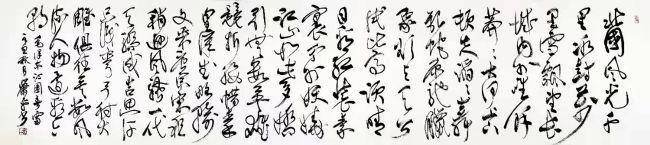 北國風光千
里冰封萬
里雪飄望長
城內外惟餘
莽莽大河上下
頓失滔滔山舞
銀蛇原馳蠟
象欲與天公
試比高須晴
日看紅裝素
裹分外妖嬈
江山如此多嬌
引無數英雄
競折腰惜秦
皇漢武略輸
文采唐宗宋祖
稍遜風騷一代
天驕成吉思汗
只識彎弓射大
雕俱往矣數風
流人物還看今
朝 毛澤東沁園春雪
秋月